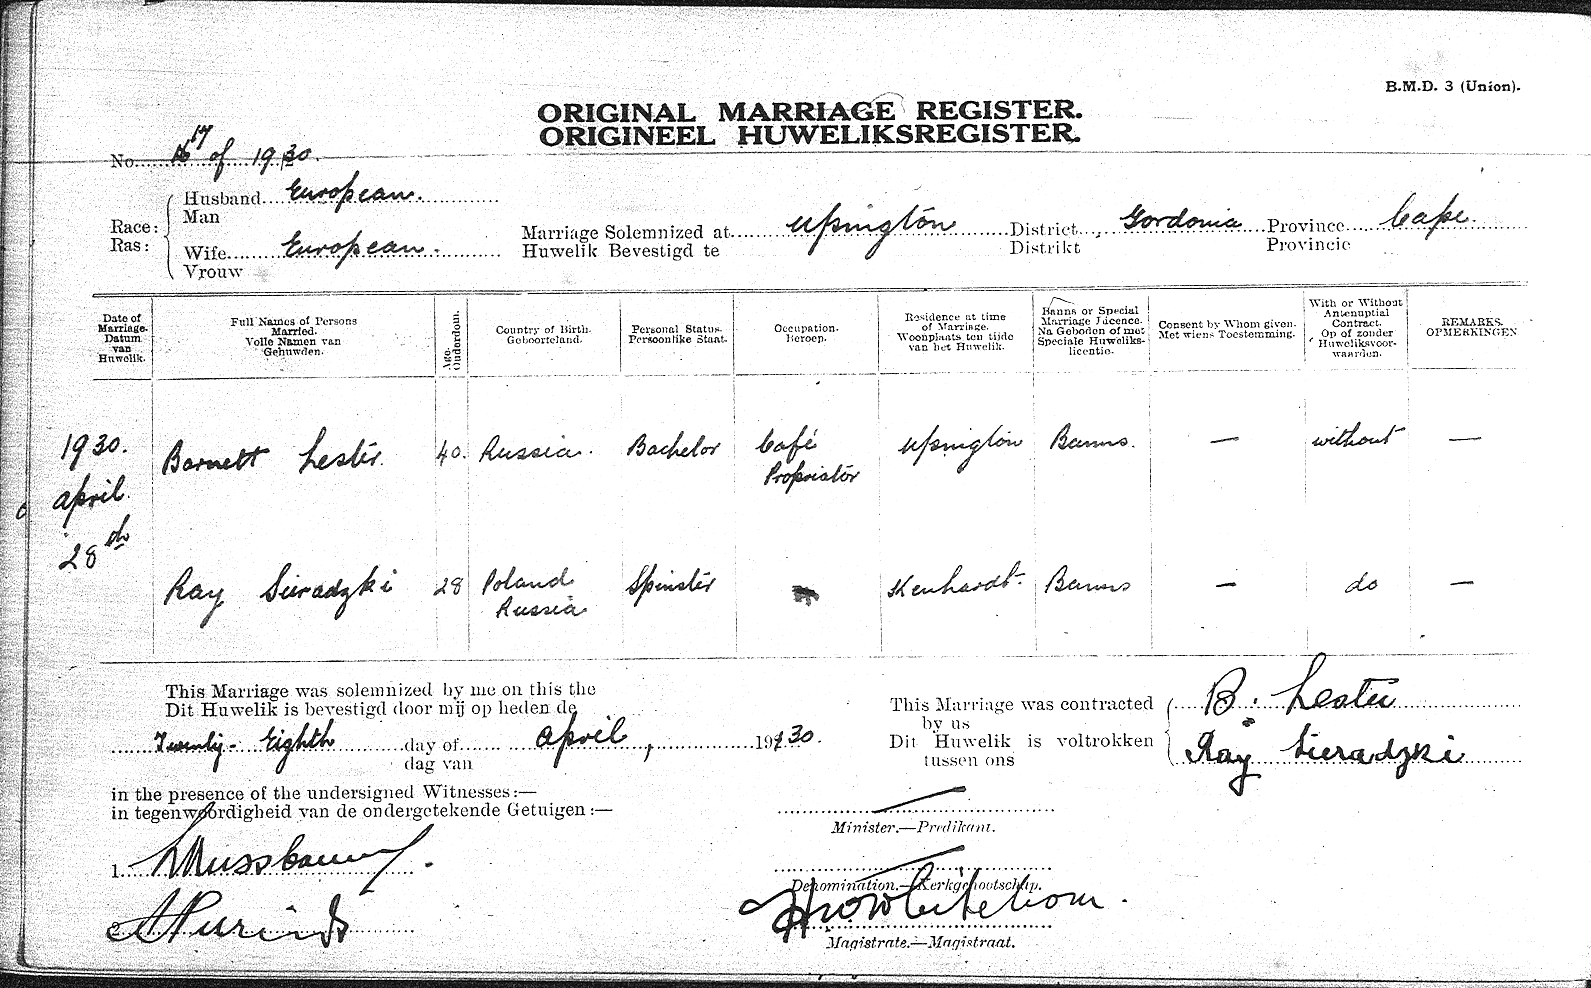 B.M.D. 3 (Union).
ORIGINAL MARRIAGE REGISTER.
ORIGINEEL HUWELIKSREGISTER.
No. 17 of 1930.
Race: Husband European.
Ras: Man
Wife European.
Vrouw
Marriage Solemnized at Upington District Gordonia Province Cape.
Huwelik Bevestigd te Distrikt Provincie
Date of Marriage. Datum van Huwelik.
Full Names of Persons Married. Volle Namen van Gehuwden.
Age. Ouderdom.
Country of Birth. Geboorteland.
Personal Status. Persoonlike Staat.
Occupation. Beroep.
Residence at time of Marriage. Woonplaats ten tijde van het Huwelik.
Banns or Special Marriage Licence. Na Geboden of met Speciale Huweliks-licentie.
Consent by Whom given. Met wiens Toestemming.
With or Without Antenuptial Contract. Op of zonder Huweliksvoor-waarden.
REMARKS. OPMERKINGEN
1930. April 28th
Barnett Lester. 40. Russia. Bachelor Café Proprietor Upington Banns. — without —
Ray Sieradzki 28 Poland Russia Spinster Kenhardt. Banns — do —
This Marriage was solemnized by me on this the
Dit Huwelik is bevestigd door mij op heden de
Twenty-Eighth day of April, 1930.
dag van
in the presence of the undersigned Witnesses:—
in tegenwoordigheid van de ondergetekende Getuigen:—
1.
2.
This Marriage was contracted B. Lester
by us
Dit Huwelik is voltrokken Ray Sieradzki
tussen ons
Minister.—Predikant.
Denomination.—Kerkgenootschap.
Magistrate.—Magistraat.